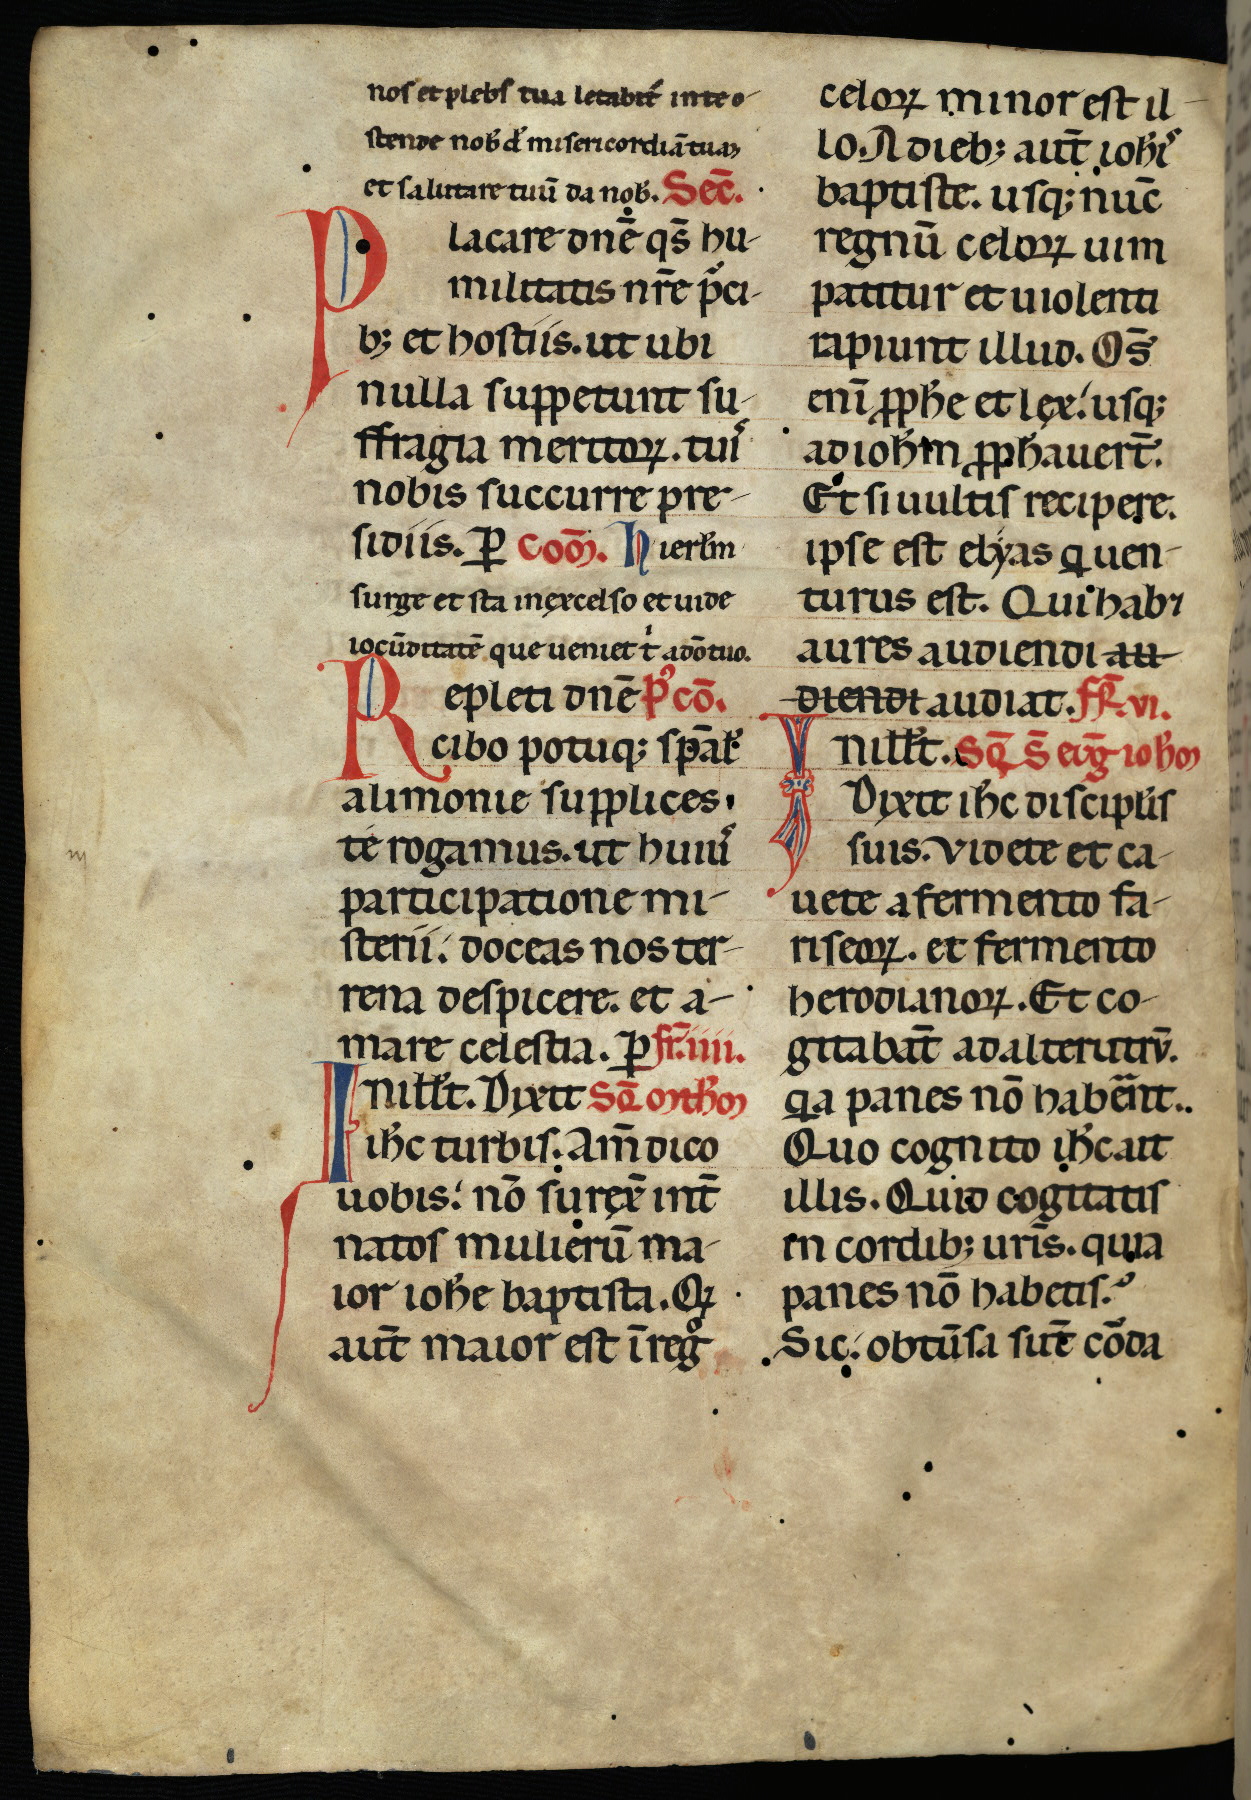 nos et plebs tua letabit᷑ in te o-
stende nob̄ d̄s misericordiā tuam
et salutare tuū da nob̄. Sec̄.
Placare dn̄e qs̄ hu-
militatis nr̄e p̄ci-
b; et hostiis. ut ubi
nulla suppetunt su-
ffragia meritoꝝ. tuis
nobis succurre pre-
sidiis. ꝑ Com̄. Hierl̄m
surge et sta in excelso et uide
iocūditatē que ueniet t̄ a dō tuo.
Repleti dn̄e P᷑ cō.
cibo potuq; sp̄al̄
alimonie supplices
te rogamus. ut huius
participatione mi-
sterii: doceas nos ter-
rena despicere. et a-
mare celestia. ꝑ fr̄. iiii.
In ill̄ t. Dixit Sq̄ mth̄m
ih̄c turbis. Am̄ dico
uobis: nō surex̄ int̄
natos mulierū ma-
ior ioh̄e baptista. Qꝝ
aut̄ maior est ī reg
celoꝝ minor est il-
lo. A dieb; aut̄ ioh̄is
baptiste. usq; nūc
regnū celoꝝ uim
patitur et uiolenti
rapiunt illud. Om̄s
enī ꝓph̄e et lex: usq;
ad ioh̄m ꝓph̄auert̄.
Et si uultis recipere.
ipse est elyas q uen-
turus est. Qui hab&
aures audiendi au-
diendi audiat. fr̄. vi.
In ill̄ t. Sq̄ s̄ euḡ ioh̄m
Dixit ih̄c discipl̄is
suis. Videte et ca-
uete a fermento fa-
riseoꝝ. et fermento
herodianoꝝ. Et co-
gitabāt ad alterutrū.
qa panes nō habēant..
Quo cognito ih̄c ait
illis. Quid cogitatis
in cordib; uris̄. quia
panes nō habetis.
Sic: obtūsa sūt cōda